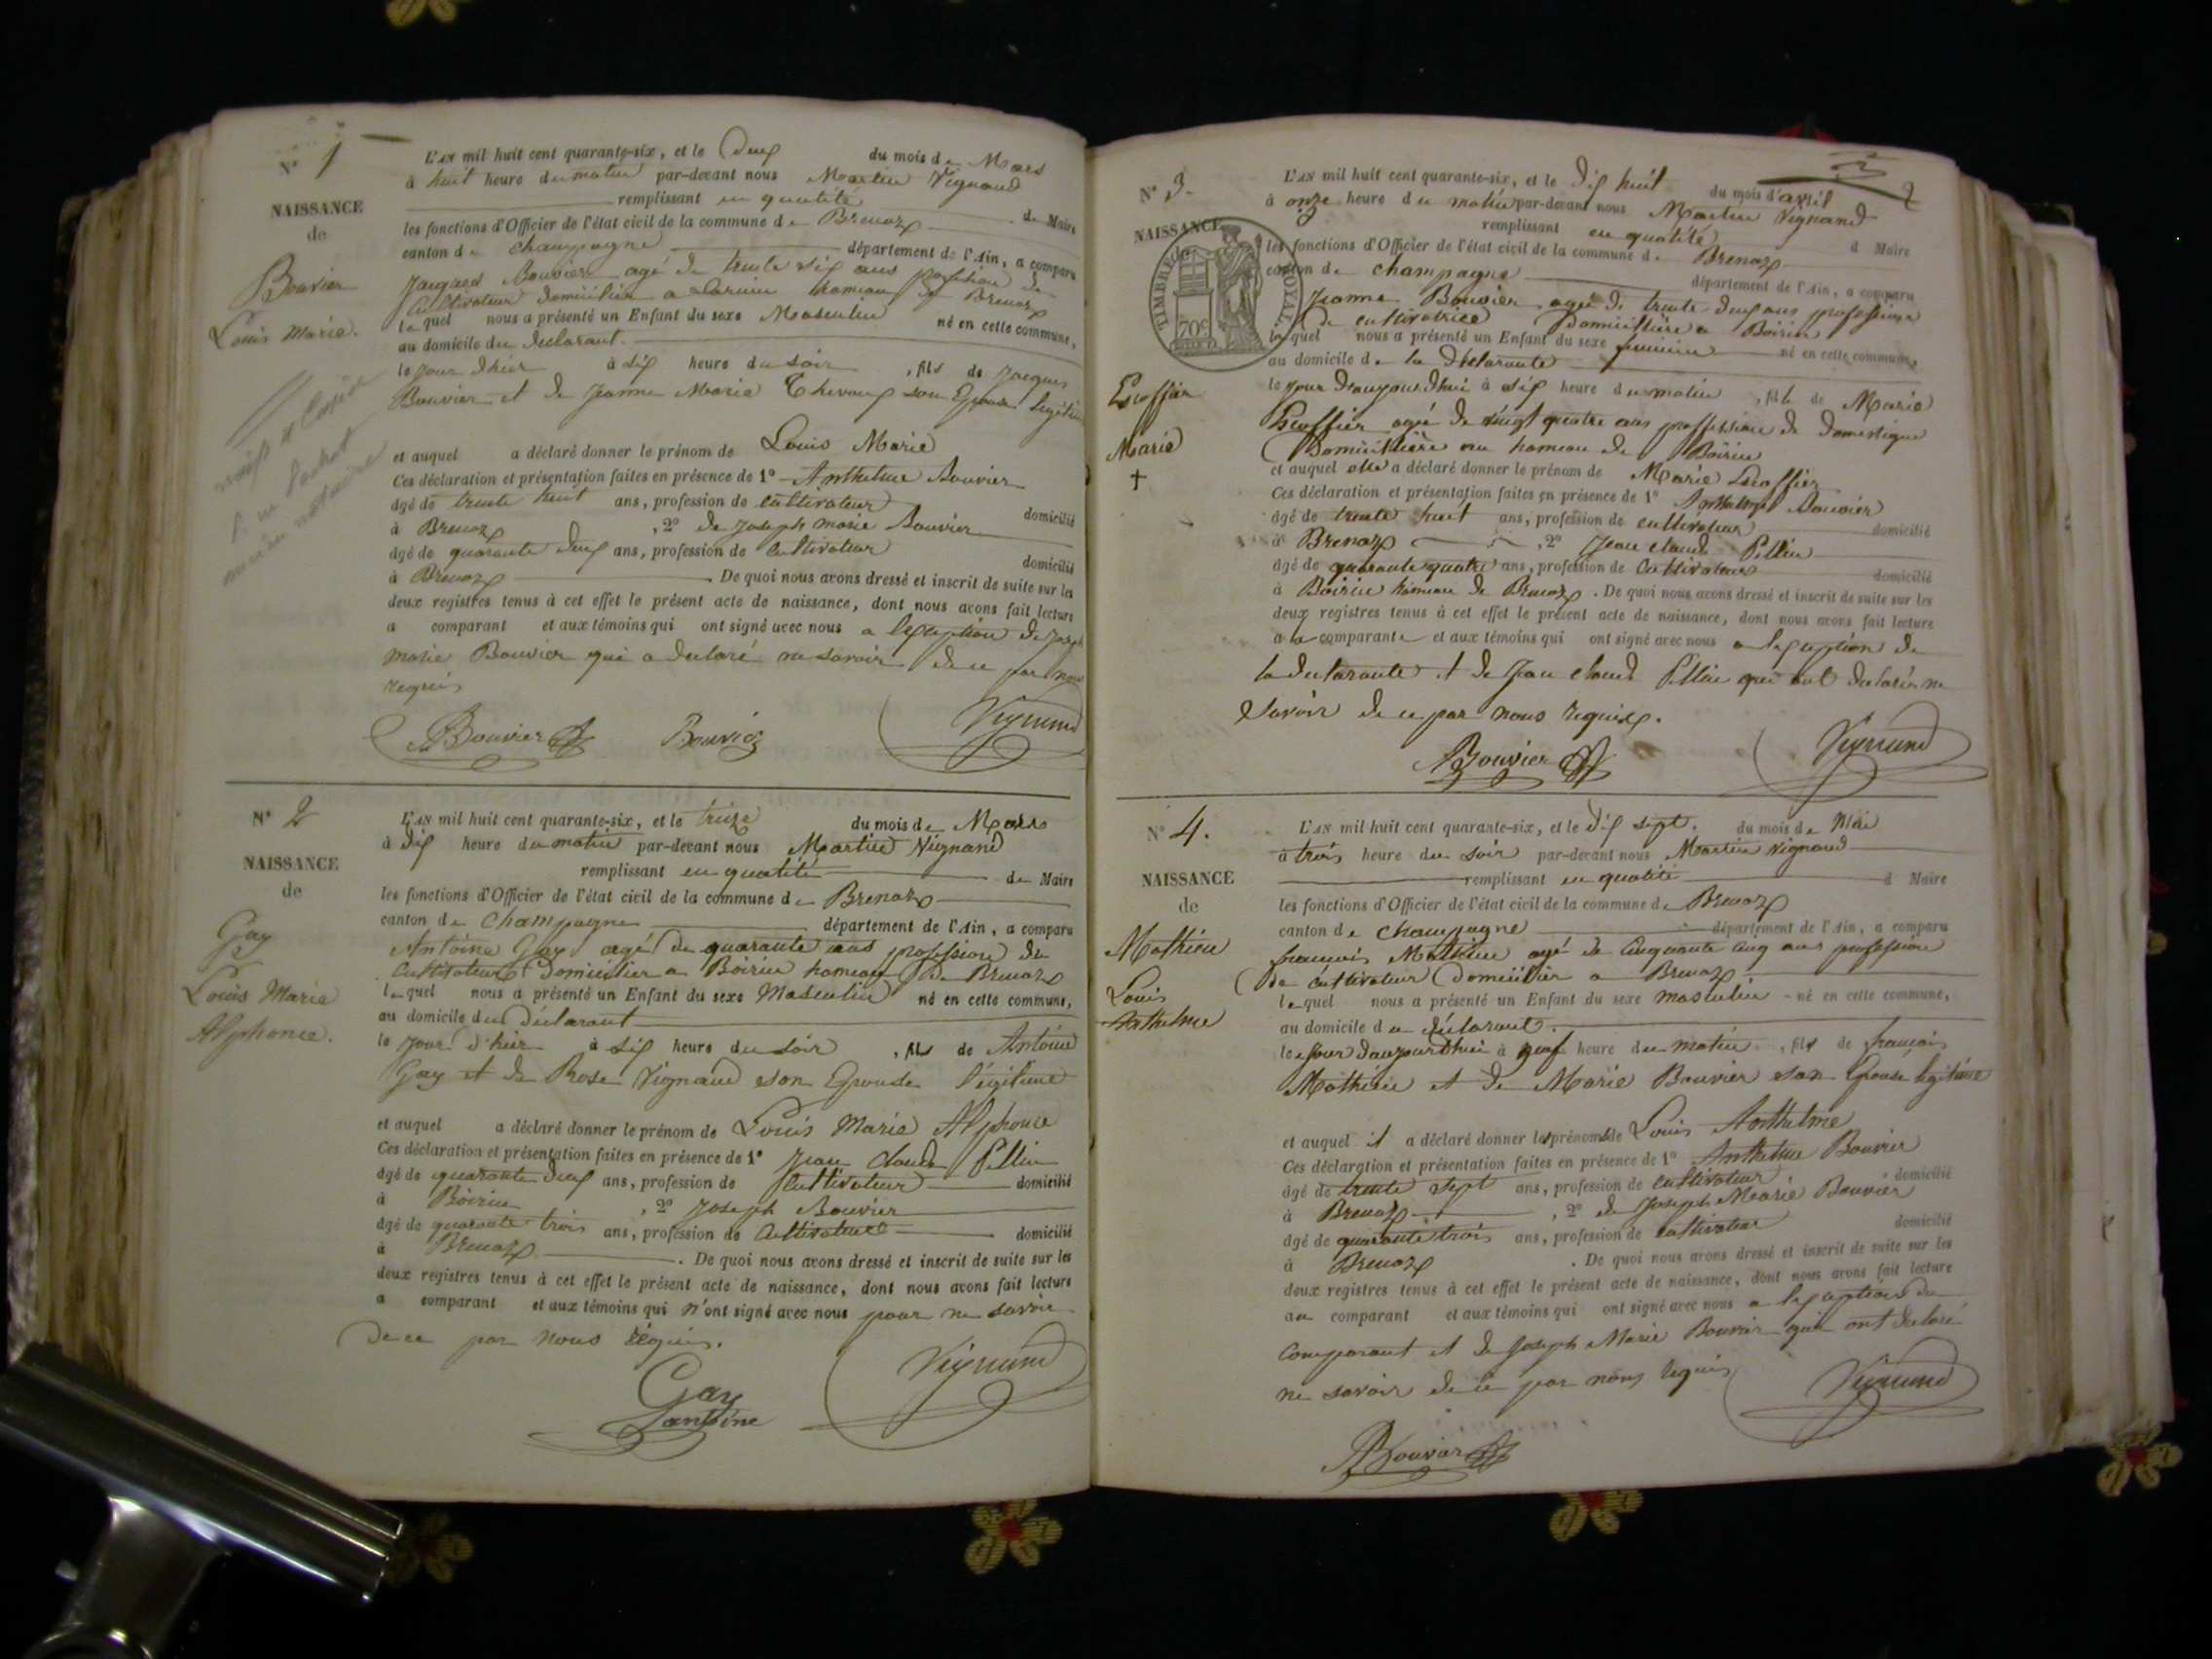 N° 1
NAISSANCE
de
Bouvier
Louis Marie.
L'AN mil huit cent quarante-six, et le deux du mois de Mars
à huit heure du matin par-devant nous Martin Vignand
remplissant en qualité de Maire
les fonctions d'Officier de l'état civil de la commune de Brenaz
canton de champagne département de l'Ain, a comparu
Jacques Bouvier agé de trente six ans profession de
Cultivateur domicilier a hameau de Brenaz
lequel nous a présenté un Enfant du sexe Masculin né en cette commune,
au domicile du declarant.
le jour d'hier à six heure du soir, fils de Jacques
Bouvier et de Jeanne Marie son Epouse légitime
et auquel a déclaré donner le prénom de Louis Marie
Ces déclaration et présentation faites en présence de 1° Anthelme Bouvier
âgé de trente huit ans, profession de cultivateur domicilié
à Brenaz, 2° de Joseph marie Bouvier
âgé de quarante deux ans, profession de Cultivateur domicilié
à Brenaz. De quoi nous avons dressé et inscrit de suite sur les
deux registres tenus à cet effet le présent acte de naissance, dont nous avons fait lecture
a comparant et aux témoins qui ont signé avec nous a lexception de Joseph
marie Bouvier qui a declaré ne savoir de ce par nous
requis
ABouvier Bouvier Vignand
N° 2
NAISSANCE
de
Gay
Louis Marie
Alphonce.
L'AN mil huit cent quarante-six, et le treize du mois de Mars
à dix heure du matin par-devant nous Martin Vignand
remplissant en qualité de Maire
les fonctions d'Officier de l'état civil de la commune de Brenaz
canton de Champagne département de l'Ain, a comparu
Antoine Gay agé de quarante ans profession de
Cultivateur domicilier a Boirin hameau de Brenaz
lequel nous a présenté un Enfant du sexe Masculin né en cette commune,
au domicile du déclarant
le jour d'hier à six heure du soir, fils de Antoine
Gay et de Rose Vignand son Epouse légitime
et auquel a déclaré donner le prénom de Louis Marie Alphonce
Ces déclaration et présentation faites en présence de 1° Jean claude Pillin
âgé de quarante deux ans, profession de Cultivateur domicilié
à Boirin, 2° Joseph Bouvier
âgé de quarante trois ans, profession de Cultivateur domicilié
à Brenaz. De quoi nous avons dressé et inscrit de suite sur les
deux registres tenus à cet effet le présent acte de naissance, dont nous avons fait lecture
a comparant et aux témoins qui n'ont signé avec nous pour ne savoir
de ce par nous réquis.
Gay
antoine
Vignand
N° 3.
NAISSANCE
de
TIMBRE ROYAL.
70c
Escoffier
Marie
L'AN mil huit cent quarante-six, et le dix huit du mois d'avril
à onze heure du matin par-devant nous Martin Vignand
remplissant en qualité d Maire
les fonctions d'Officier de l'état civil de la commune de Brenaz
canton de champagne département de l'Ain, a comparu
Jeanne Bouvier agé de trente deux ans profession
de cultivatrice domicilière a Boirin
lequel nous a présenté un Enfant du sexe feminin né en cette commune,
au domicile de la déclarante
le jour d'aujourd'hui à six heure du matin, fille de Marie
Escoffier agé de vingt quatre ans proffession de domestique
Domicilière au hameau de Boirin
et auquel elle a déclaré donner le prénom de Marie Escoffier
Ces déclaration et présentation faites en présence de 1° Anthelme Bouvier
âgé de trente huit ans, profession de cultivateur domicilié
à Brenaz, 2° Jean claude Pillin
âgé de quarante quatre ans, profession de Cultivateur domicilié
à Boirin hameau de Brenaz. De quoi nous avons dressé et inscrit de suite sur les
deux registres tenus à cet effet le présent acte de naissance, dont nous avons fait lecture
a la comparante et aux témoins qui ont signé avec nous a lexception de
la declarante et de Jean claude Pillin qui ont declarés ne
Savoir de ce par nous requis.
ABouvier Vignand
N° 4.
NAISSANCE
de
Mathieu
Louis
Anthelme
L'AN mil huit cent quarante-six, et le dix sept. du mois de Mai
à trois heure du soir par-devant nous Martin Vignand
remplissant en qualité d Maire
les fonctions d'Officier de l'état civil de la commune de Brenaz
canton de Champagne département de l'Ain, a comparu
francois Mathieu agé de cinquante cinq ans profession
de cultivateur domicilier a Brenaz
lequel nous a présenté un Enfant du sexe masculin né en cette commune,
au domicile du déclarant.
le jour d'aujourd'hui à neuf heure du matin, fils de francois
Mathieu et de Marie Bouvier son Epouse légitime
et auquel il a déclaré donner les prénoms de Louis Anthelme
Ces déclaration et présentation faites en présence de 1° Anthelme Bouvier
âgé de trente sept ans, profession de cultivateur domicilié
à Brenaz, 2° de Joseph Marie Bouvier
âgé de quarante trois ans, profession de cultivateur domicilié
à Brenaz. De quoi nous avons dressé et inscrit de suite sur les
deux registres tenus à cet effet le présent acte de naissance, dont nous avons fait lecture
au comparant et aux témoins qui ont signé avec nous a lexception du
comparant et de Joseph Marie Bouvier qui ont declaré
ne savoir de ce par nous requis
Vignand
ABouvier